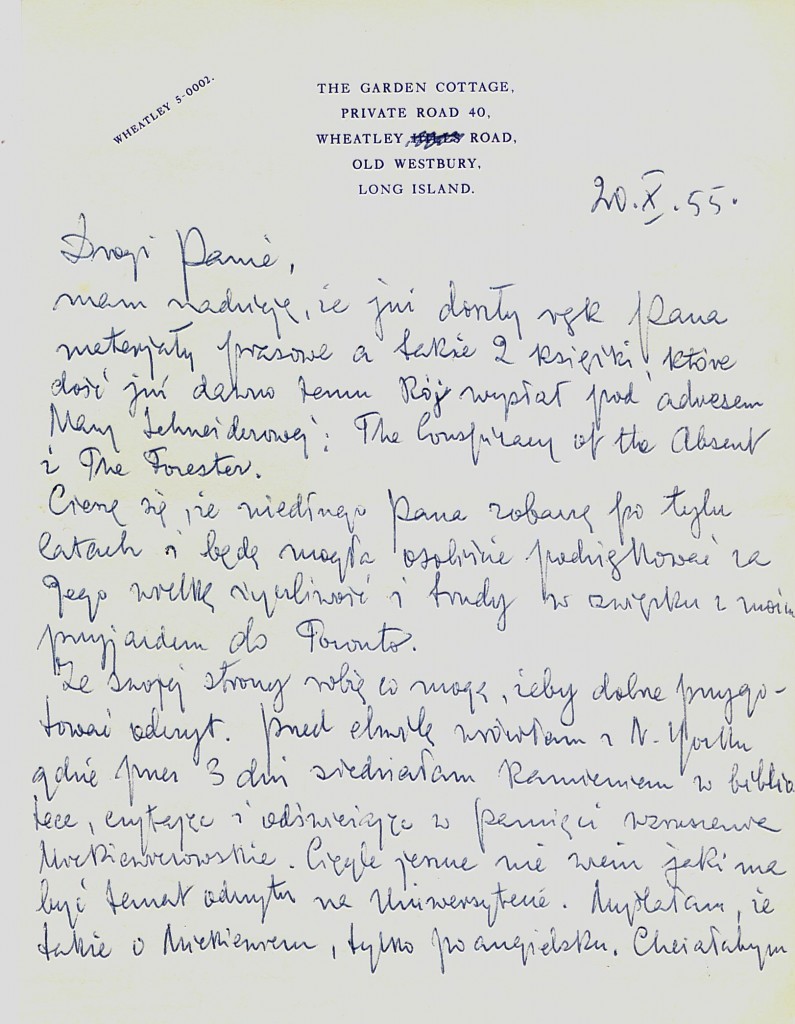 WHEATLEY 5-0002.
THE GARDEN COTTAGE,
PRIVATE ROAD 40,
WHEATLEY ROAD,
OLD WESTBURY,
LONG ISLAND.
20.X.55.
Drogi Panie,
mam nadzieję, że już doszły rąk Pana
materjały prasowe a także 2 książki, które
dość już dawno temu Rój wysłał pod adresem
Mary Schneiderowej: The Conspiracy of the Absent
i The Forester.
Cieszę się, że niedługo Pana zobaczę po tylu
latach i będę mogła osobiście podziękować za
Jego wielką życzliwość i trudy w związku z moim
przyjazdem do Toronto.
Ze swojej strony robię co mogę, żeby dobrze przygo-
tować odczyt. Przed chwilą wróciłam z N. Yorku
gdzie przez 3 dni siedziałam kamieniem w biblio
tece, czytając i odświeżając w pamięci wzruszenia
Mickiewiczowskie. Ciągle jeszcze nie wiem jaki ma
być temat odczytu na Uniwersytecie. Myślałam, że
także o Mickiewiczu, tylko po angielsku. Chciałabym